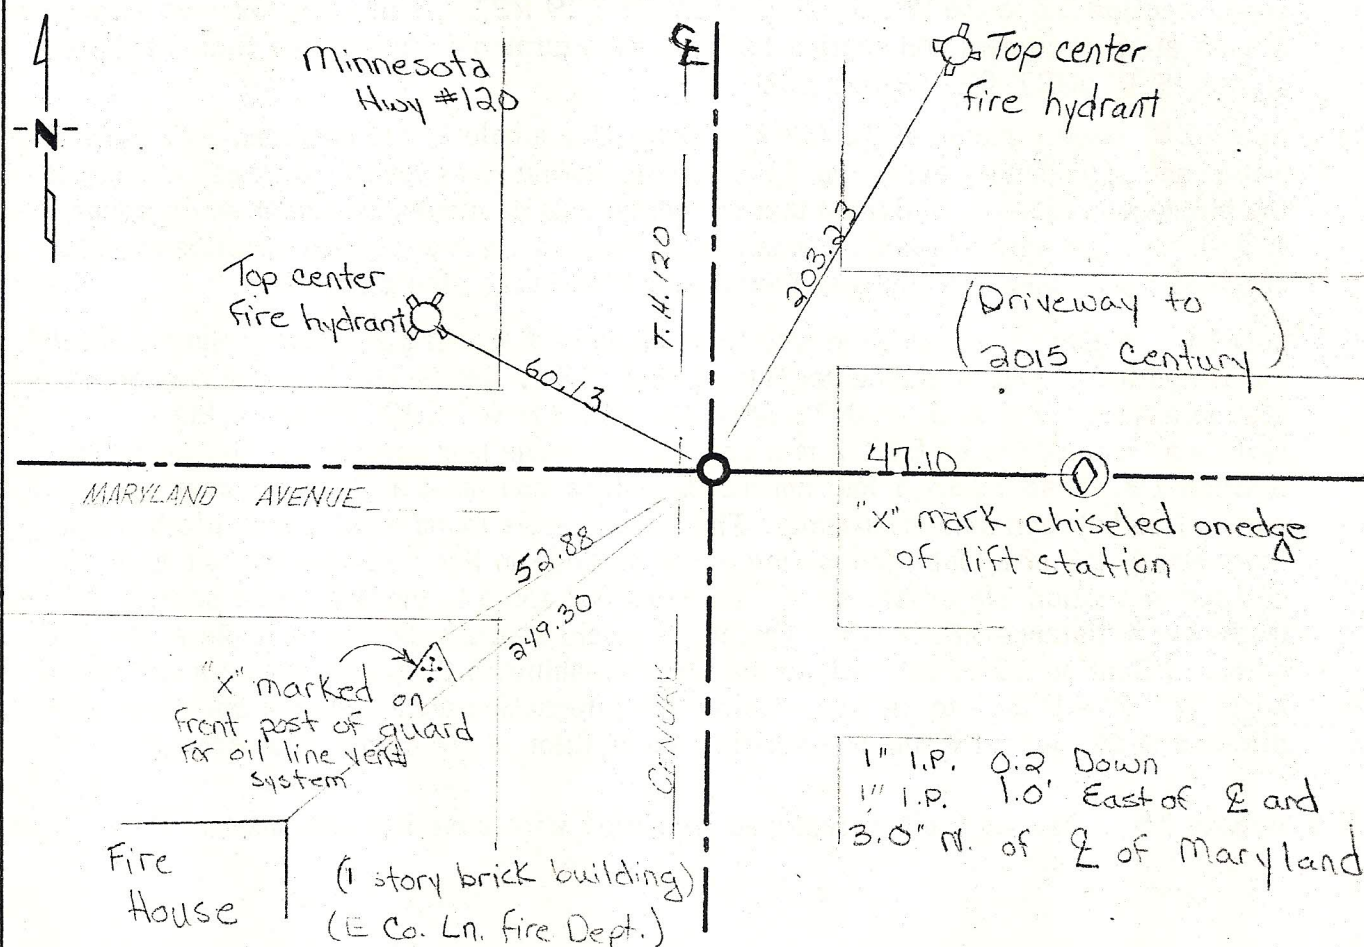 Minnesota
Hwy #120
℄
Top center
fire hydrant
N
T.H. 120
203.23
Top center
fire hydrant
(Driveway to
2015 Century)
60.13
47.10
MARYLAND AVENUE
"x" mark chiseled on edge
of lift station
52.88
249.30
"x" marked on
front post of guard
for oil line vent
system
CENTURY
1" I.P. 0.2 Down
1" I.P. 1.0' East of ℄ and
3.0" N. of ℄ of Maryland
Fire
House
(1 story brick building)
(E Co. Ln. Fire Dept.)